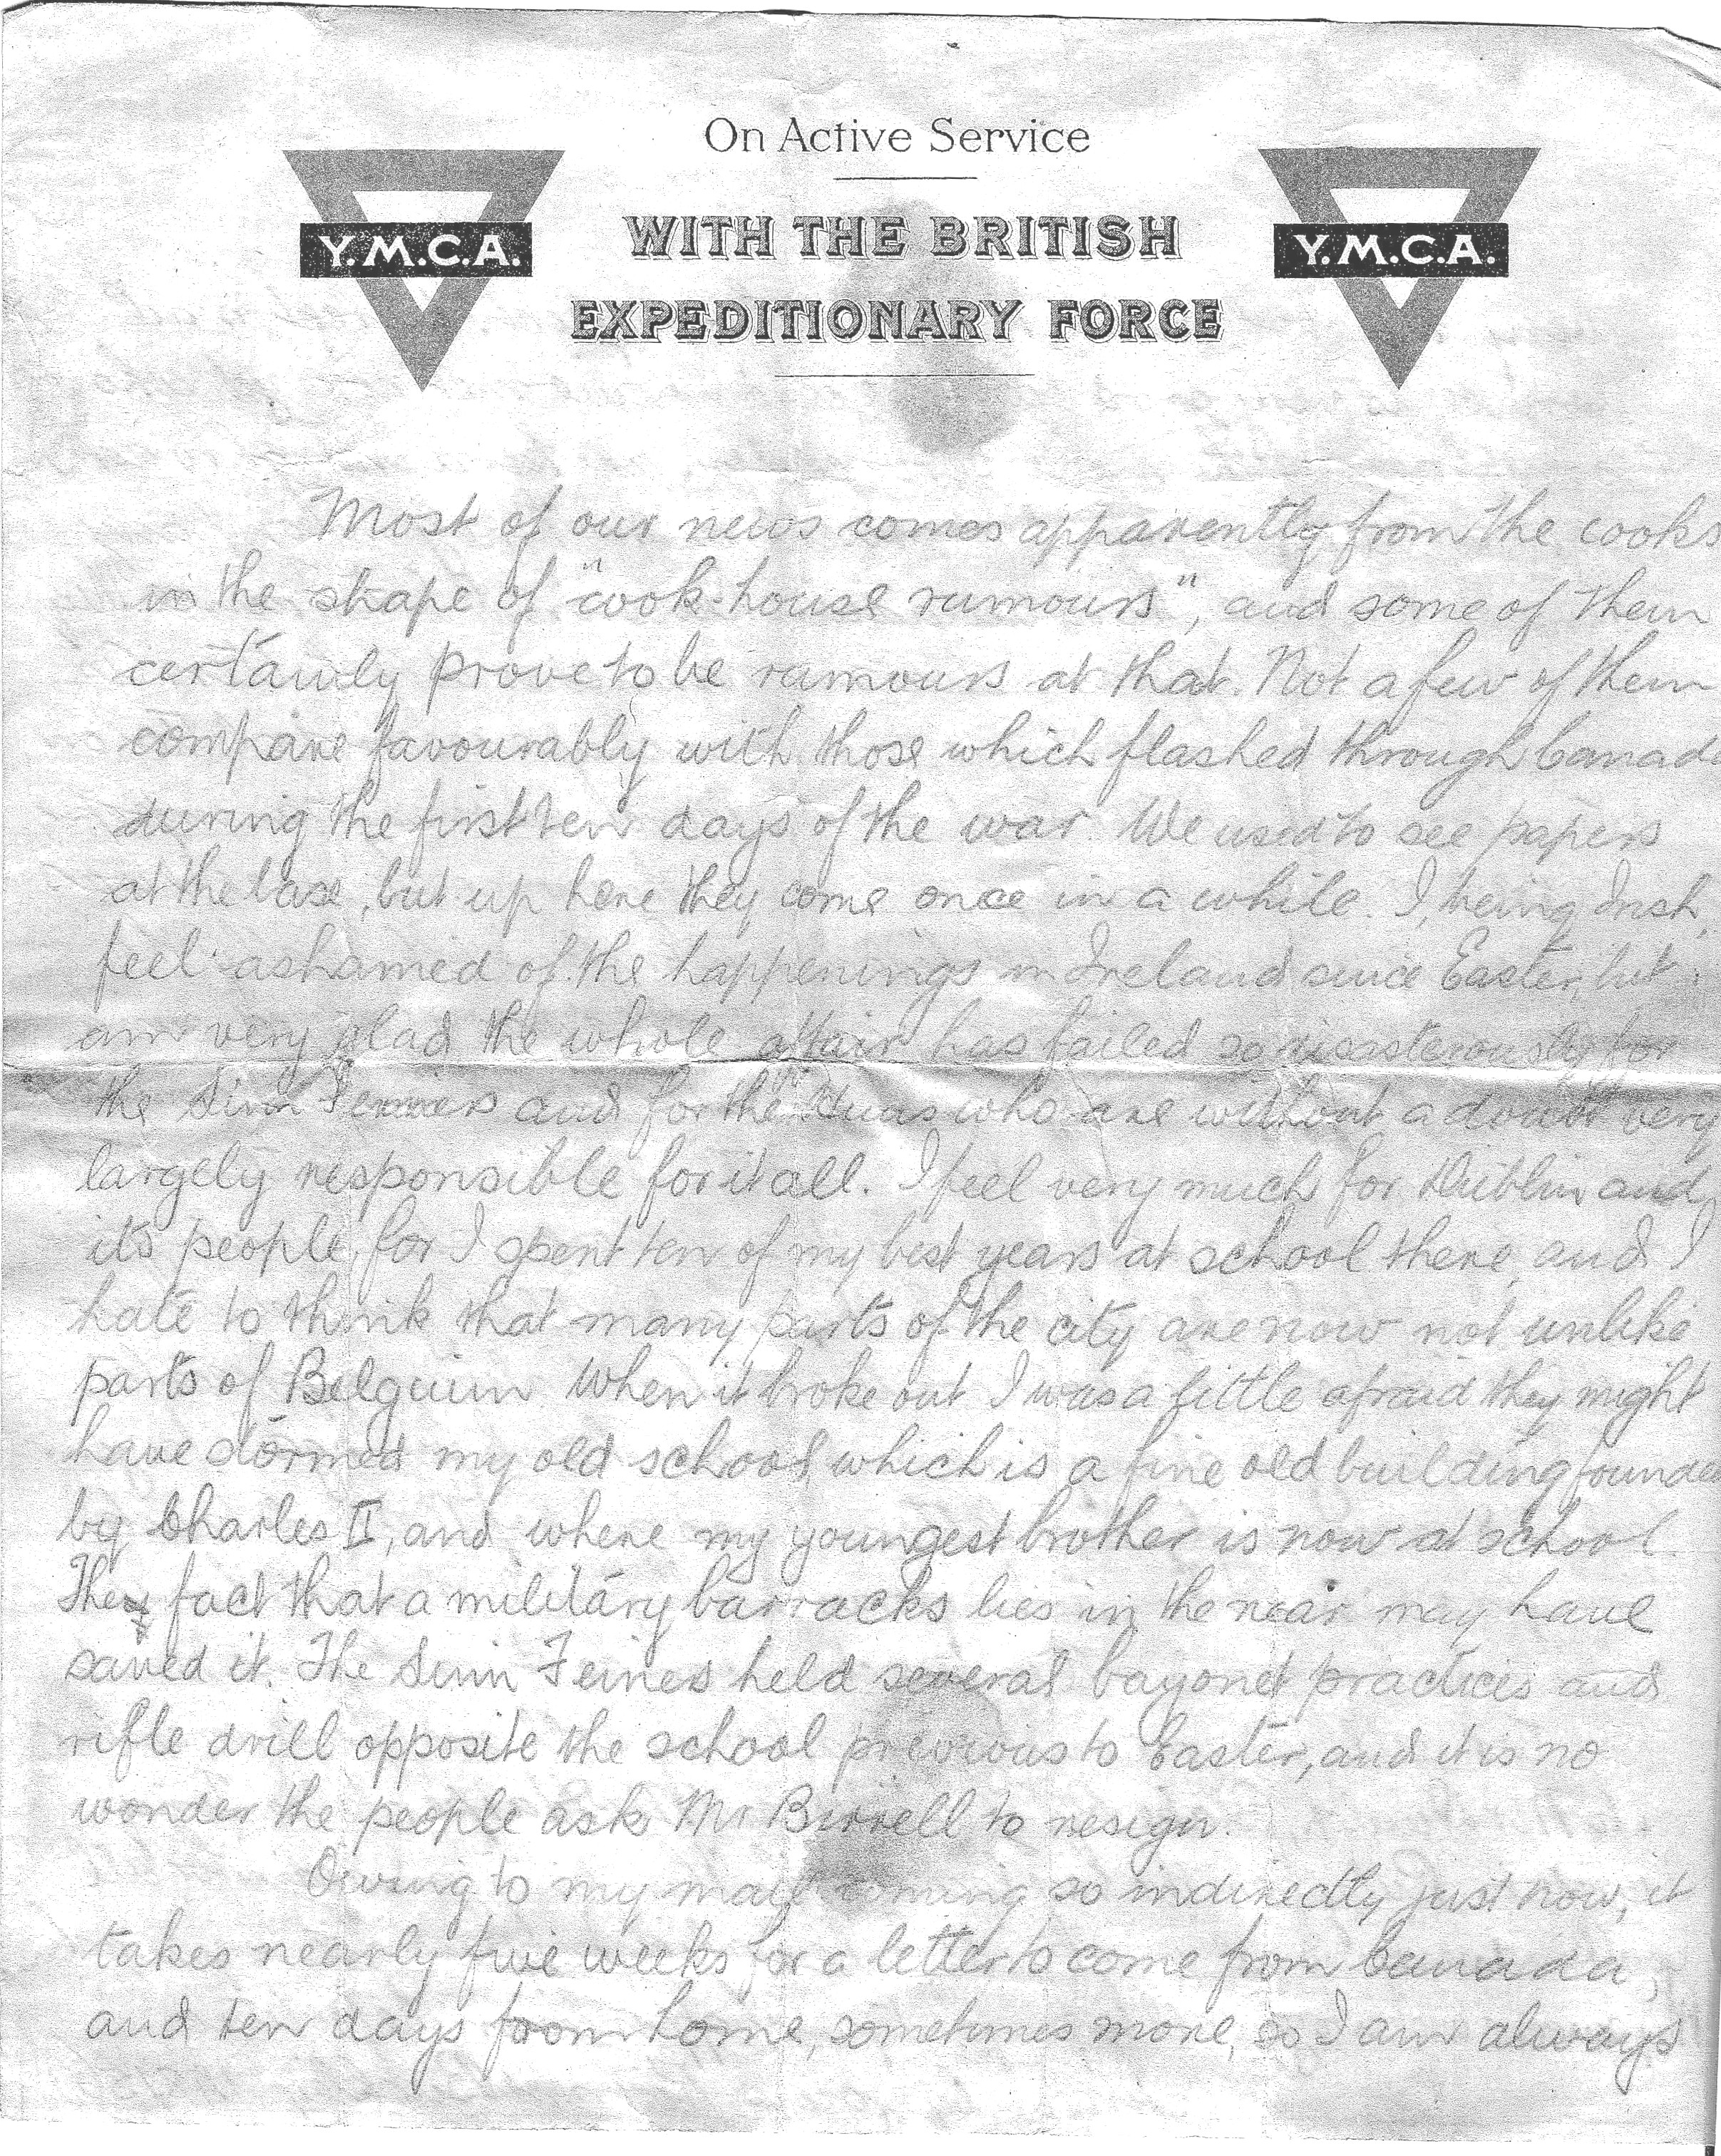 On Active Service
Y.M.C.A.
WITH THE BRITISH
Y.M.C.A.
EXPEDITIONARY FORCE
Most of our news comes apparently from the cooks
in the shape of "cook-house rumours", and some of them
certainly prove to be rumours at that. Not a few of them
compare favourably with those which flashed through Canada
during the first ten days of the war. We used to see papers
at the base, but up here they come once in a while. I, being Irish,
feel ashamed of the happenings in Ireland since Easter, but
am very glad the whole affair has failed so disasterously for
the Sinn Feiners and for the Huns who are without a doubt very
largely responsible for it all. I feel very much for Dublin and
its people, for I spent ten of my best years at school there, and I
hate to think that many parts of the city are now not unlike
parts of Belguim. When it broke out I was a little afraid they might
have stormed my old school, which is a fine old building founded
by Charles II, and where my youngest brother is now at school.
The fact that a military barracks lies in the near may have
saved it. The Sinn Feiners held several bayonet practices and
rifle drill opposite the school previous to Easter, and it is no
wonder the people ask Mr Birrell to resign.
Owing to my mail coming so indirectly just now, it
takes nearly five weeks for a letter to come from Canada,
and ten days from home, sometimes more, so I am always